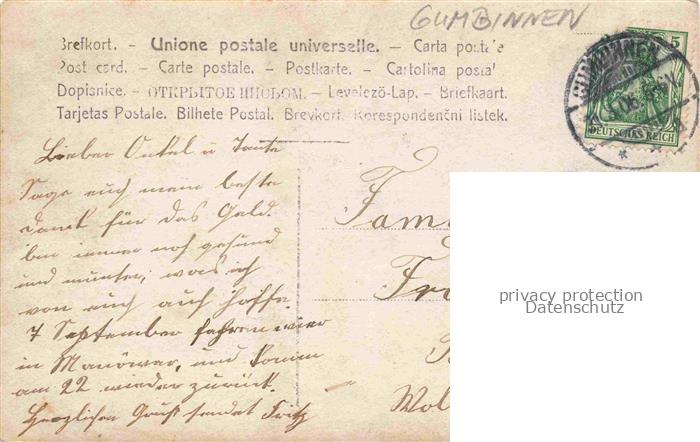 GUMBINNEN
Brefkort. – Unione postale universelle. – Carta postale
Post card. – Carte postale. – Postkarte. – Cartolina postal
Dopisnice. – ОТКРЫТОЕ ПИСЬМО. – Levelező-Lap. – Briefkaart.
Tarjetas Postale. Bilhete Postal. Brevkort. Korespondenční listek.
GUMBINNEN
5
DEUTSCHES REICH
Lieber Onkel u Tante
Sage euch mein beste
Dank für das Geld.
bin immer noch gesund
und munter, was ich
von euch auch hoffe.
7 September fahren wier
in Manöwer, und komm
am 22. wieder zurück.
Herzlichen Gruß sendet Fritz
Fam
Fr
Wol
privacy protection
Datenschutz